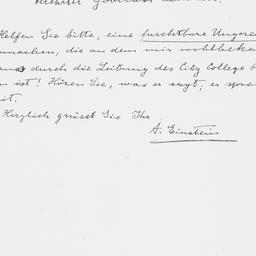 Helfen Sie bitte, eine furchtbare Ungere
machen, die an dem mir wohlbekan
durch die Leitung des City College b
n ist! Hören Sie, was er sagt; er
it.
Herzlich grüsst Sie Ihr
A. Einstein